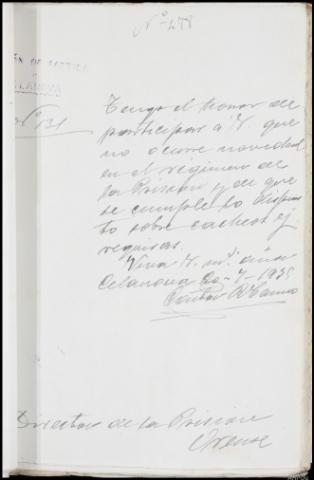 Nº 278
Nº 131
Tengo el honor de
participar á V. que
no ocurre novedad
en el régimen de
la Prision y de que
se cumple lo dispues
to sobre cacheos y
requisas.
Viva V. m.ˢ años
Celanova 20-7-1935
Director de la Prision
Orense